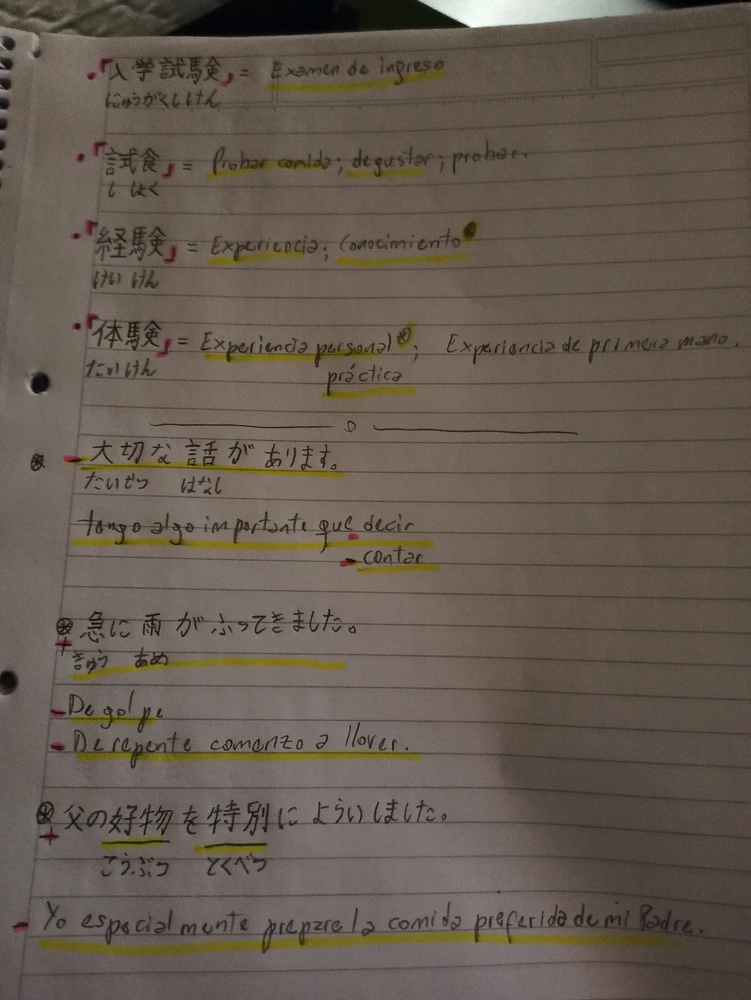 •「入学試験」= Examen de ingreso
にゅうがくしけん
•「試食」= Probar comida; degustar; probar.
ししょく
•「経験」= Experiencia; Conocimiento
けいけん
•「体験」= Experiencia personal; Experiencia de primera mano.
たいけん
práctica
- 大切な話があります。
たいせつ はなし
tengo algo importante que decir
- contar
急に雨がふってきました。
きゅう あめ
- De golpe
- De repente comenzo a llover.
父の好物を特別によういしました。
こうぶつ とくべつ
- Yo especialmente prepare la comida preferida de mi Padre.